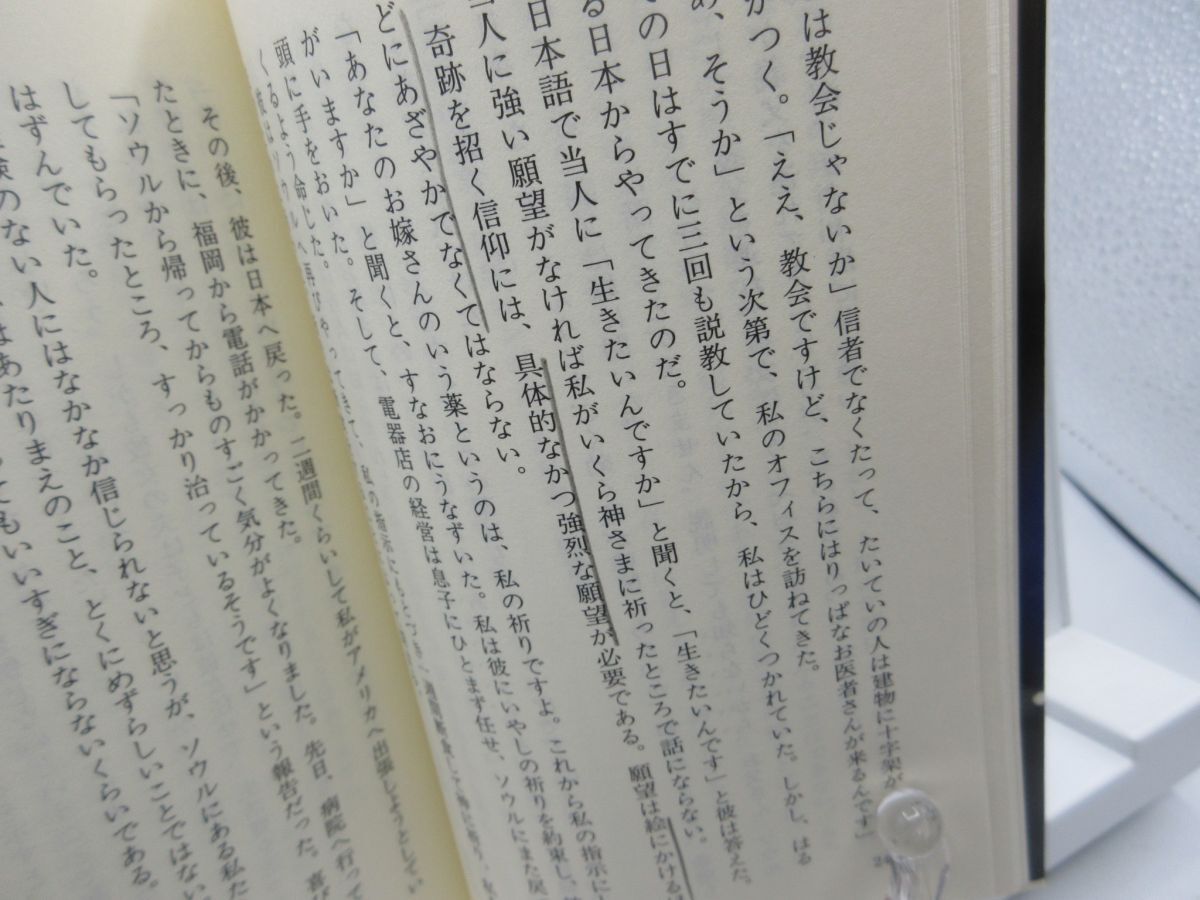 は教会じゃないか」信者でなくたって、たいていの人は建物に十字架が
がつく。「ええ、教会ですけど、こちらにはりっぱなお医者さんが来るんです」
あ、そうか」という次第で、私のオフィスを訪ねてきた。
の日はすでに三回も説教していたから、私はひどくつかれていた。しかし、はる
る日本からやってきたのだ。
日本語で当人に「生きたいんですか」と聞くと、「生きたいんです」と彼は答えた。
当人に強い願望がなければ私がいくら神さまに祈ったところで話にならない。
奇跡を招く信仰には、具体的なかつ強烈な願望が必要である。願望は絵にかける
どにあざやかでなくてはならない。
「あなたのお嫁さんのいう薬というのは、私の祈りですよ。これから私の指示に
がいますか」と聞くと、すなおにうなずいた。私は彼にいやしの祈りを約束し、
頭に手をおいた。そして、電器店の経営は息子にひとまず任せ、ソウルにまた戻
くるよう命じた。
彼はソウルへ再びやってきて、私の指示にもとづき一週間断食して
その後、彼は日本へ戻った。二週間くらいして私がアメリカへ出張しようとしてい
たときに、福岡から電話がかかってきた。
「ソウルから帰ってからものすごく気分がよくなりました。先日、病院へ行って
してもらったところ、すっかり治っているそうです」という報告だった。喜び
はずんでいた。
験のない人にはなかなか信じられないと思うが、ソウルにある私た
はあたりまえのこと、とくにめずらしいことではない
ってもいいすぎにならないくらいである。